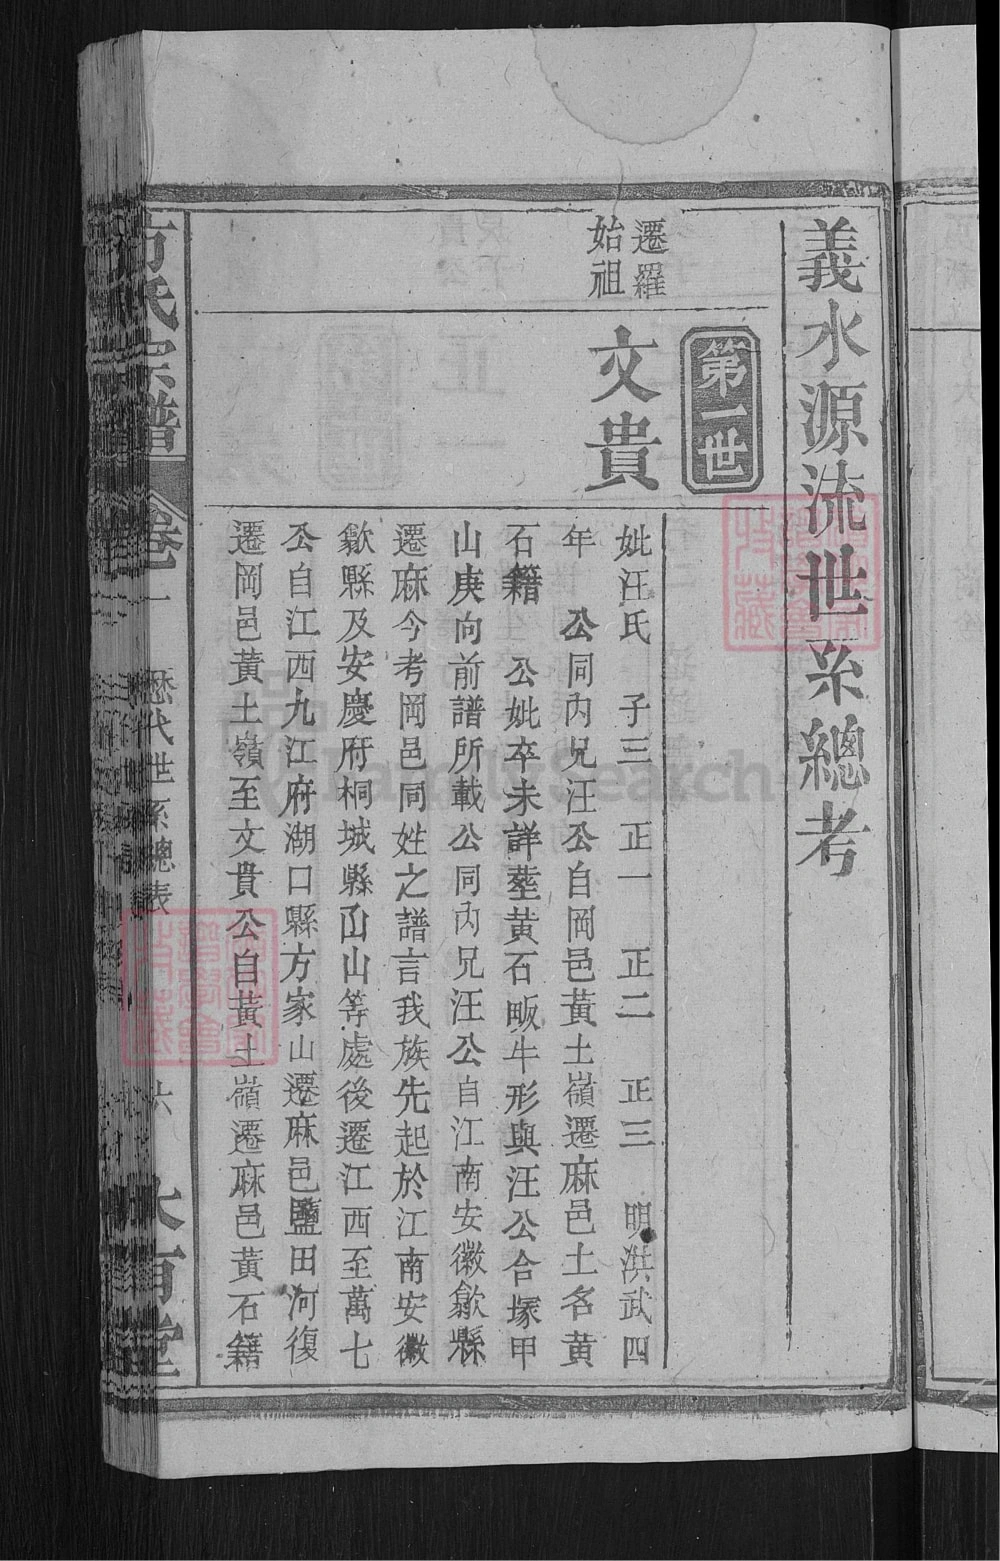 義水源流世系總考
第一世
遷羅
始祖
文貴
妣汪氏 子三 正一 正二 正三 明洪武四
年 公同內兄汪公自岡邑黃土嶺遷麻邑土名黃
石籍 公妣卒未詳塟黃石畈牛形與汪公合塚甲
山庚向前譜所載公同內兄汪公自江南安徽歙縣
遷麻今考岡邑同姓之譜言我族先起於江南安徽
歙縣及安慶府桐城縣白山等處後遷江西至萬七
公自江西九江府湖口縣方家山遷麻邑鹽田河復
遷岡邑黃土嶺至文貴公自黃土嶺遷麻邑黃石籍
方氏宗譜 卷一 歷代世系總表 六
FamilySearch